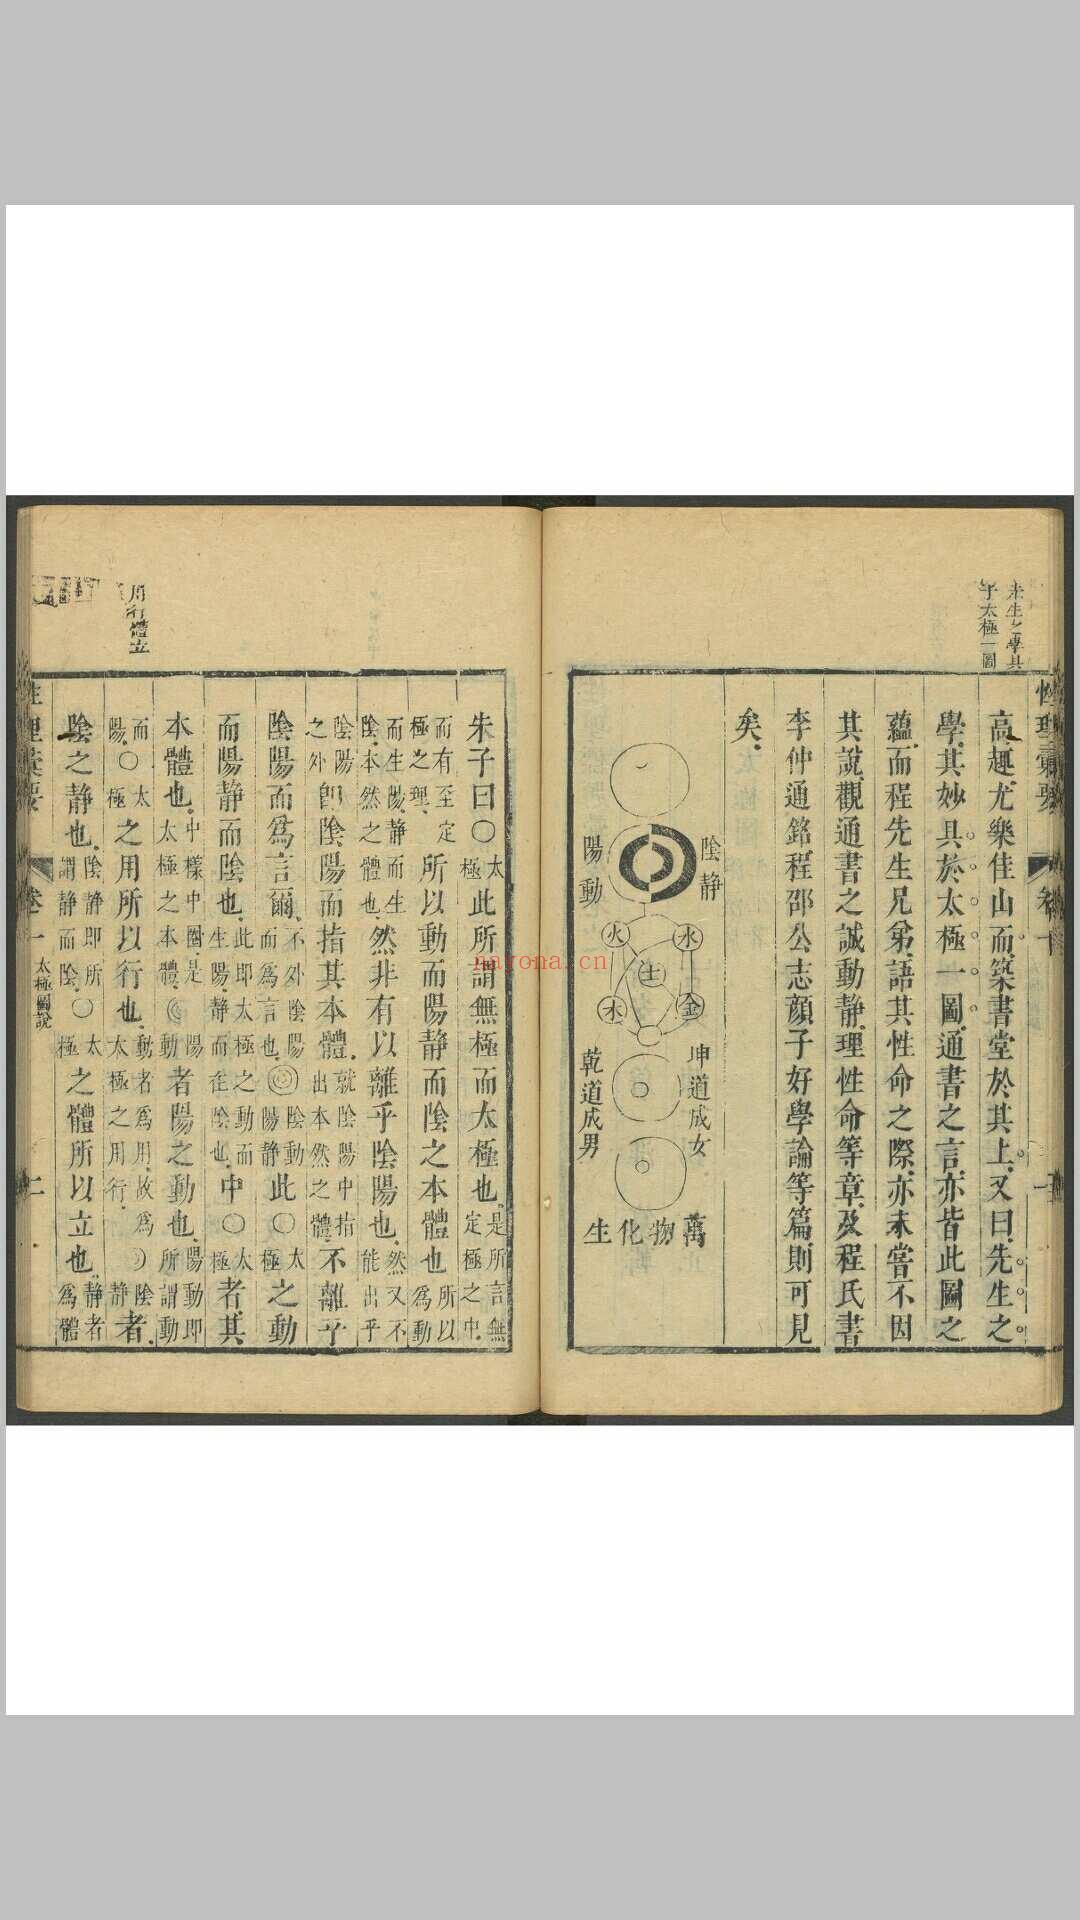 先生之學具
于太極一圖
高趣尤樂佳山而築書堂於其上又曰先生之
學其妙具於太極一圖通書之言亦皆此圖之
蘊而程先生兄弟語其性命之際亦未嘗不因
其說觀通書之誠動靜理性命等章及程氏書
李仲通銘程邵公志顔子好學論等篇則可見
矣
陰靜
陽動
火
水
土
木
金
坤道成女
乾道成男
萬物化生
朱子曰〇太極此所謂無極而太極也是所言無定極之中
而有至定極之理所以動而陽靜而陰之本體也所以爲動
而生陽靜而生陰本然之體也然非有以離乎陰陽也然又不能出乎
陰陽之外卽陰陽而指其本體就陰陽中指出本然之體不離乎
陰陽而爲言爾不外陰陽而爲言也陰動陽靜此〇太極之動
而陽靜而陰也此即太極之動而生陽靜而在陰也中〇太極者其
本體也中樣中圈是太極之本體陽動者陽之動也陽動即所謂動
而陽〇太極之用所以行也動者爲用故爲太極之用行陰靜者
陰之靜也陰靜即所謂靜而陰〇太極之體所以立也靜者爲體
用行體立
性理彙要
卷一
太極圖說
二
nayona.cn